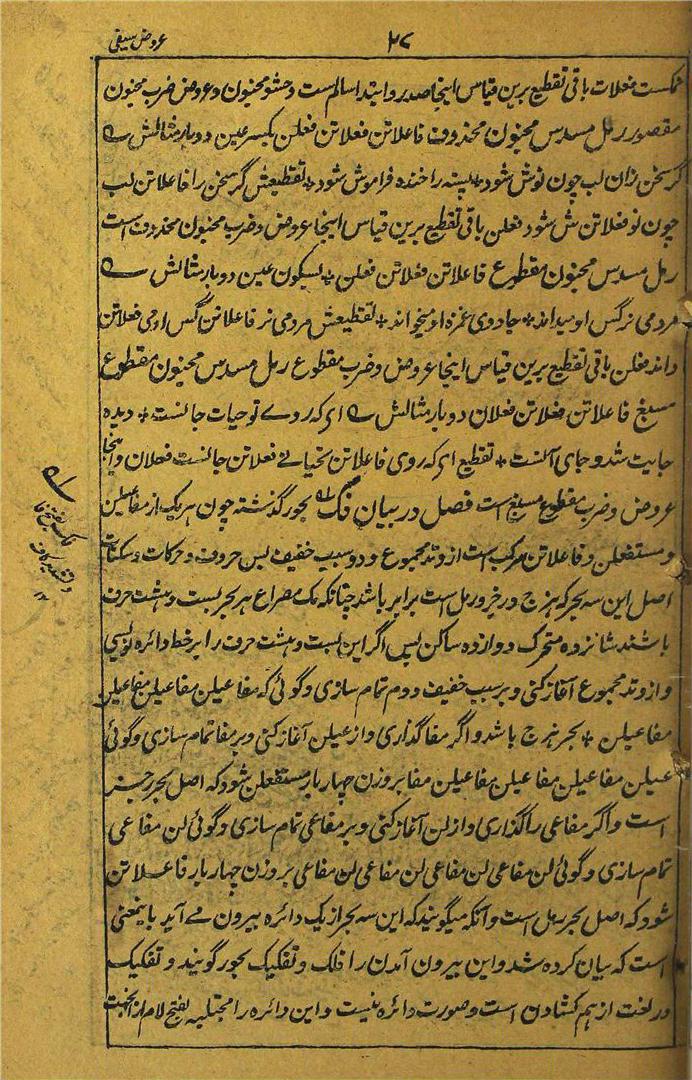 ۲۷
عروض سیفی
نمکست فعلات باقی تقطیع برین قیاس اینجا صدر و ابتدا سالم است و حشو مخبون و عروض و ضرب مخبون
مقصور رمل مسدس مخبون محذوف فاعلاتن فعلاتن فعلن بکسر عین دو بار مثالش
گر سخن زان لب چون نوش شود * پسته را خنده فراموش شود * تقطیعش گر سخن زا فاعلاتن لب
چون نو فعلاتن ش شود فعلن باقی تقطیع برین قیاس اینجا عروض و ضرب مخبون محذوف است
رمل مسدس مخبون مقطوع فاعلاتن فعلاتن فعلن * بسکون عین دو بار مثالش
مردمی نرگس او میداند * جادوی غمزه او میخواند * تقطیعش مردمی نر فاعلاتن گس او می فعلاتن
داند فعلن باقی تقطیع برین قیاس اینجا عروض و ضرب مقطوع رمل مسدس مخبون مقطوع
مسبغ فاعلاتن فعلاتن فعلان دو بار مثالش ای که روے تو حیات جانست * دیده
جایت شد و جای آنست * تقطیع ای که روی فاعلاتن تحیاتے فعلاتن جانست فعلان و اینجا
عروض و ضرب مقطوع مسبغ است فصل در بیان فک بحور گذشته چون هر یک از مفاعیلن
و مستفعلن و فاعلاتن مرکب است از وتد مجموع و دو سبب خفیف پس حروف و حرکات و سکنات
اصل این سه بحر که هزج و رجز و رمل است برابر باشد چنانکه یک مصراع هر بحر بست و هشت حرف
باشند شانزده متحرک دوازده ساکن پس اگر این بست و هشت حرف را بر خط دائره نویسی
و از وتد مجموع آغاز کنی و بر سبب خفیف دوم تمام سازی و گوئی که مفاعیلن مفاعیلن مفاعیلن
مفاعیلن * بحر هزج باشد و اگر مفا گذاری و از عیلن آغاز کنی و بر مفا تمام سازی و گوئی
عیلن مفاعیلن مفاعیلن مفاعیلن مفا بر وزن چهار بار مستفعلن شود که اصل بحر رجز
است و اگر مفاعی را گذاری و از لن آغاز کنی و بر مفاعی تمام سازی و گوئی لن مفاعی
تمام سازی و گوئی لن مفاعی لن مفاعی لن مفاعی لن مفاعی بر وزن چهار بار فاعلاتن
شود که اصل بحر رمل است و آنکه میگویند که این سه بحر از یک دائره بیرون مے آید باینمعنی
است که بیان کرده شد و این بیرون آمدن را فک و تفکیک بحور گویند و تفکیک
در لغت از هم کشادن است و صورت دائره نیست و این دائره را مجتلبه بفتح لام از آنجهت
فک بفتح فا
و تشدید کاف
۱۲